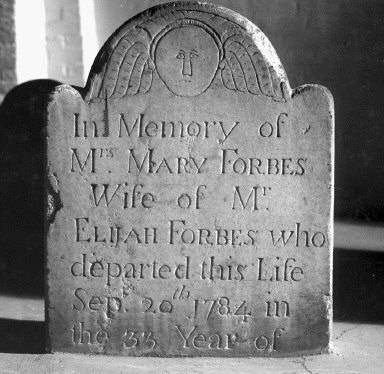 In Memory of
Mrs MARY FORBES
Wife of Mr.
ELIJAH FORBES who
departed this Life
Sept. 20th 1784 in
the 33 Year of